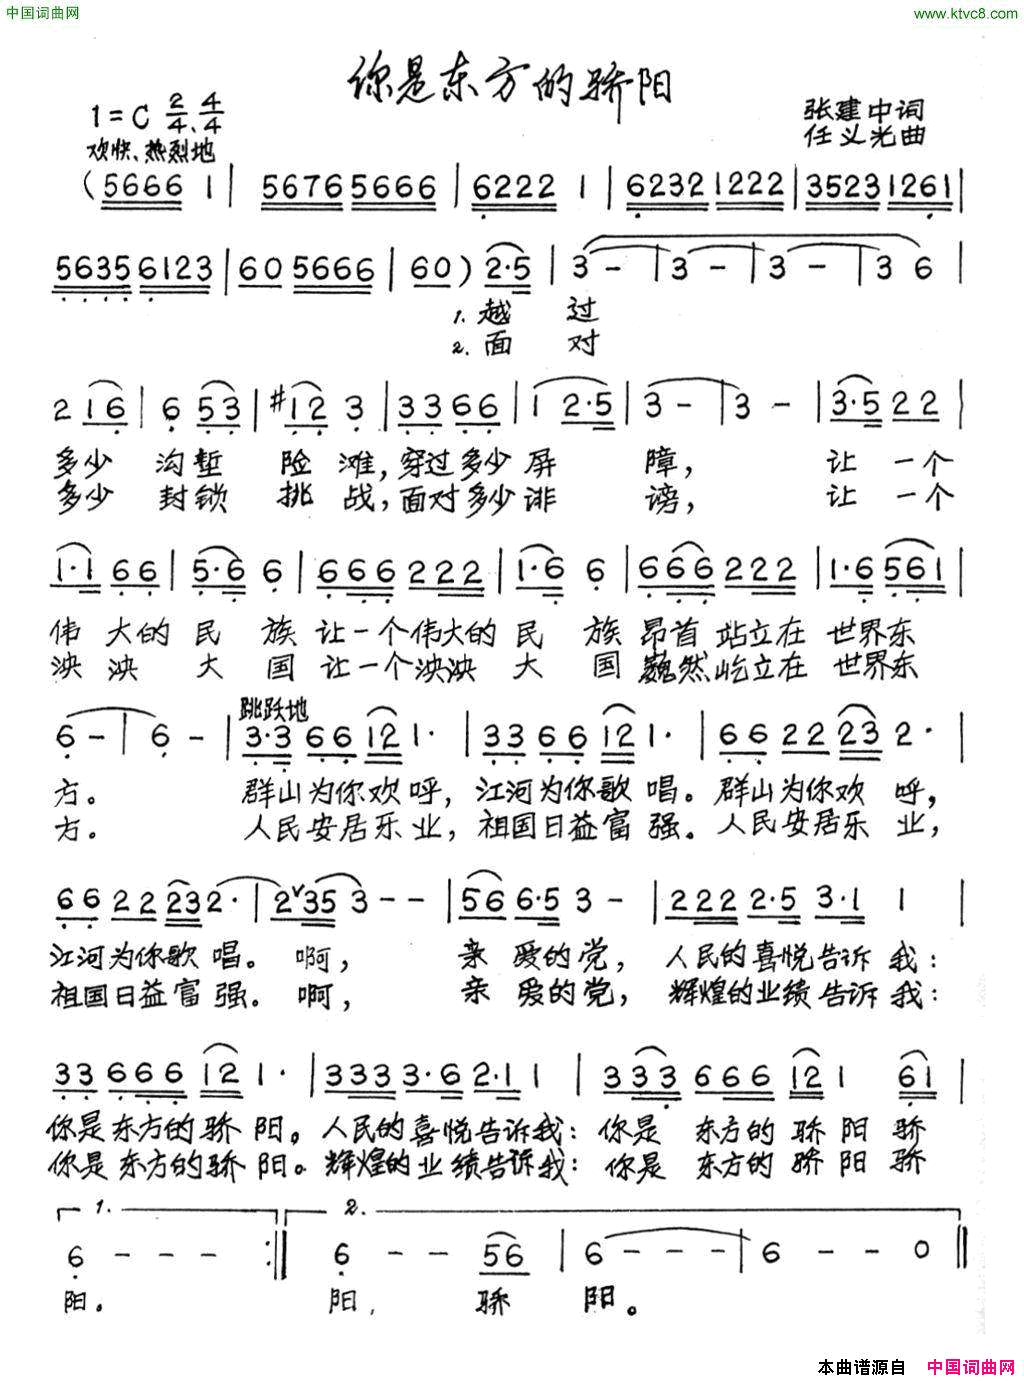 中国词曲网
www.ktvc8.com
你是东方的骄阳
1=C 2/4 4/4
张建中词
任义光曲
欢快、热烈地
(5666 1 | 5676 5666 | 6222 1 | 6232 1222 | 3523 1261 |
5635 6123 | 60 5666 | 60) 2·5 | 3 - | 3 - | 3 - | 3 6 |
1. 越 过
2. 面 对
2 16 | 6 53 | #12 3 | 33 66 | 1 2·5 | 3 - | 3 - | 3·5 22 |
多少 沟堑 险 滩, 穿过多少屏 障, 让 一个
多少 封锁 挑 战, 面对多少诽 谤, 让 一个
1·1 66 | 5·6 6 | 666 222 | 1·6 6 | 666 222 | 1·6 561 |
伟 大的 民 族 让一个伟大的 民 族 昂首 站立在 世界东
泱 泱 大 国 让一个泱泱 大 国 巍然屹立在 世界东
6 - | 6 - | 3·3 66 12 1· | 33 66 12 1· | 66 22 23 2· |
跳跃地
方。 群山为你欢 呼, 江河为你歌 唱。 群山为你欢 呼,
方。 人民安居乐 业, 祖国日益富 强。 人民安居乐 业,
66 22 23 2· | 2∨35 3 - - | 56 6·5 3 - | 222 2·5 3·1 1 |
江河为你歌 唱。 啊, 亲 爱的党, 人民的喜悦告诉 我:
祖国日益富 强。 啊, 亲 爱的党, 辉煌的业绩告诉 我:
33 666 12 1· | 333 3·6 2·1 1 | 333 666 12 1 61 |
你是东方的骄 阳。 人民的喜悦告诉我: 你是 东方的 骄 阳 骄
你是东方的骄 阳。 辉煌的业绩告诉我: 你是 东方的 骄 阳 骄
1. 2.
6 - - - :| 6 - - 56 | 6 - - - | 6 - - 0 ||
阳。 阳, 骄 阳。
本曲谱源自 中国词曲网